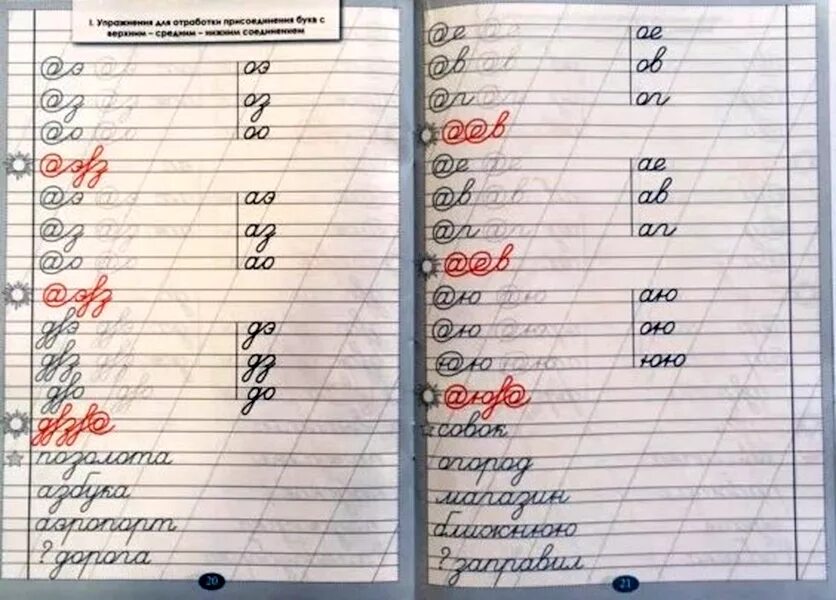 I. Упражнения для отработки присоединения букв с
верхним – средним – нижним соединением
оэ оэ оэ
оз оз оз
оо оо оо
аэ аэ аэ
аз аз аз
ао ао ао
дэ дэ дэ
дз дз дз
до до до
позолота
азбука
аэропорт
? дорога
20
ое ое ое
ов ов ов
оп оп оп
аев
ае ае ае
ав ав ав
ап ап ап
аев
аю аю аю
ою ою ою
юю юю юю
совок
огород
магазин
ближнюю
? заправил
21